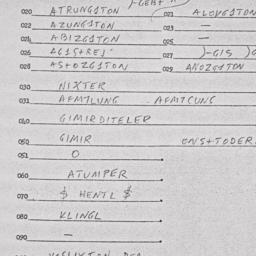 020 ATRUNGSTON 021 ALOVGSTON
022 AZUNGSTON 023 —
024 ABIZGSTON 025 —
026 027
028 ASTOZGSTON 029 ANOZGSTON
030 NIXTER
031 AFM7LUNG . AFM7CUNG
040 GIMIRDITELER
050 GIMIR ENS+TODER
051 O
060 ATUMPER
070 $ HENTL $
080 KLINGL
090 —